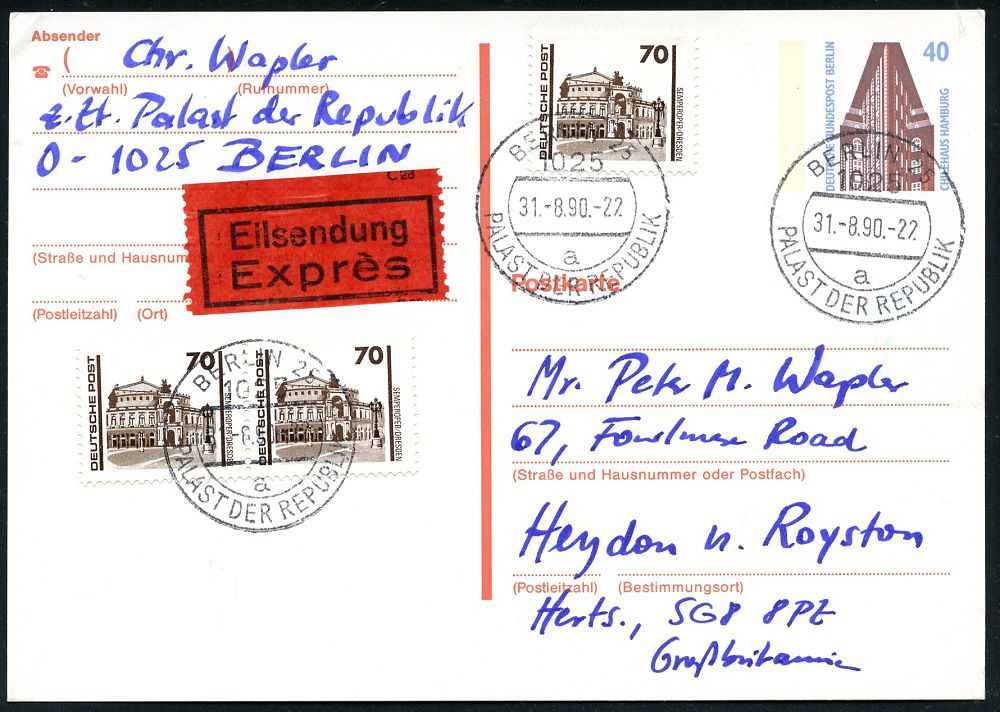 Absender
( Chr. Wapler )
(Vorwahl) (Rufnummer)
z. Zt. Palast der Republik
O - 1025 BERLIN
C 28
Eilsendung
Exprès
(Straße und Hausnum
(Postleitzahl) (Ort)
DEUTSCHE POST
70
SEMPEROPER·DRESDEN
DEUTSCHE POST
70
SEMPEROPER·DRESDEN
BERLIN 25
a
PALAST DER REPUBLIK
DEUTSCHE POST
70
SEMPEROPER·DRESDEN
BERLIN 25
1025
31.-8.90.-22
a
PALAST DER REPUBLIK
DEUTSCHE BUNDESPOST BERLIN
40
CHILEHAUS HAMBURG
BERLIN 25
1025
31.-8.90.-22
a
PALAST DER REPUBLIK
Postkarte
Mr. Peter M. Wapler
67, Fowlmere Road
(Straße und Hausnummer oder Postfach)
Heydon n. Royston
(Postleitzahl) (Bestimmungsort)
Herts., SG8 8PZ
Großbritannien